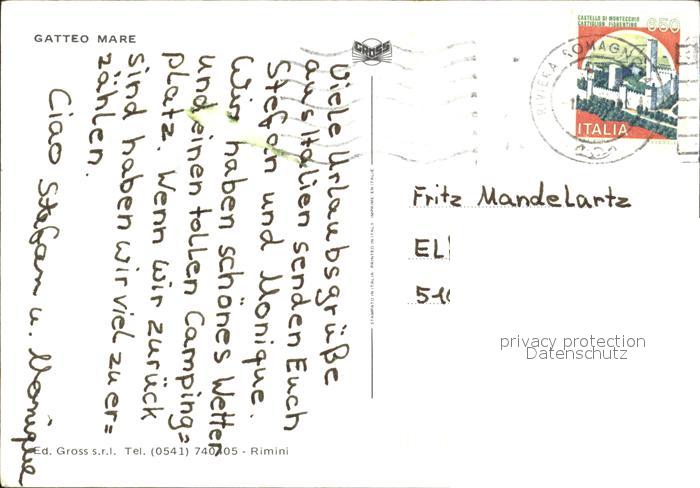 GATTEO MARE
Viele Urlaubsgrüße
aus Italien senden Euch
Stefan und Monique.
Wir haben schönes Wetter
und einen tollen Camping=
platz. Wenn wir zurück
sind haben wir viel zu er=
zählen.
Ciao Stefan u. Monique
Ed. Gross s.r.l. Tel. (0541) 740405 - Rimini
GROSS
STAMPATO IN ITALIA PRINTED IN ITALY IMPRIME EN ITALIE
CASTELLO DI MONTECCHIO
CASTIGLION FIORENTINO
650
ITALIA
RIVIERA ROMAGNO
Fritz Mandelartz
EL
51
privacy protection
Datenschutz